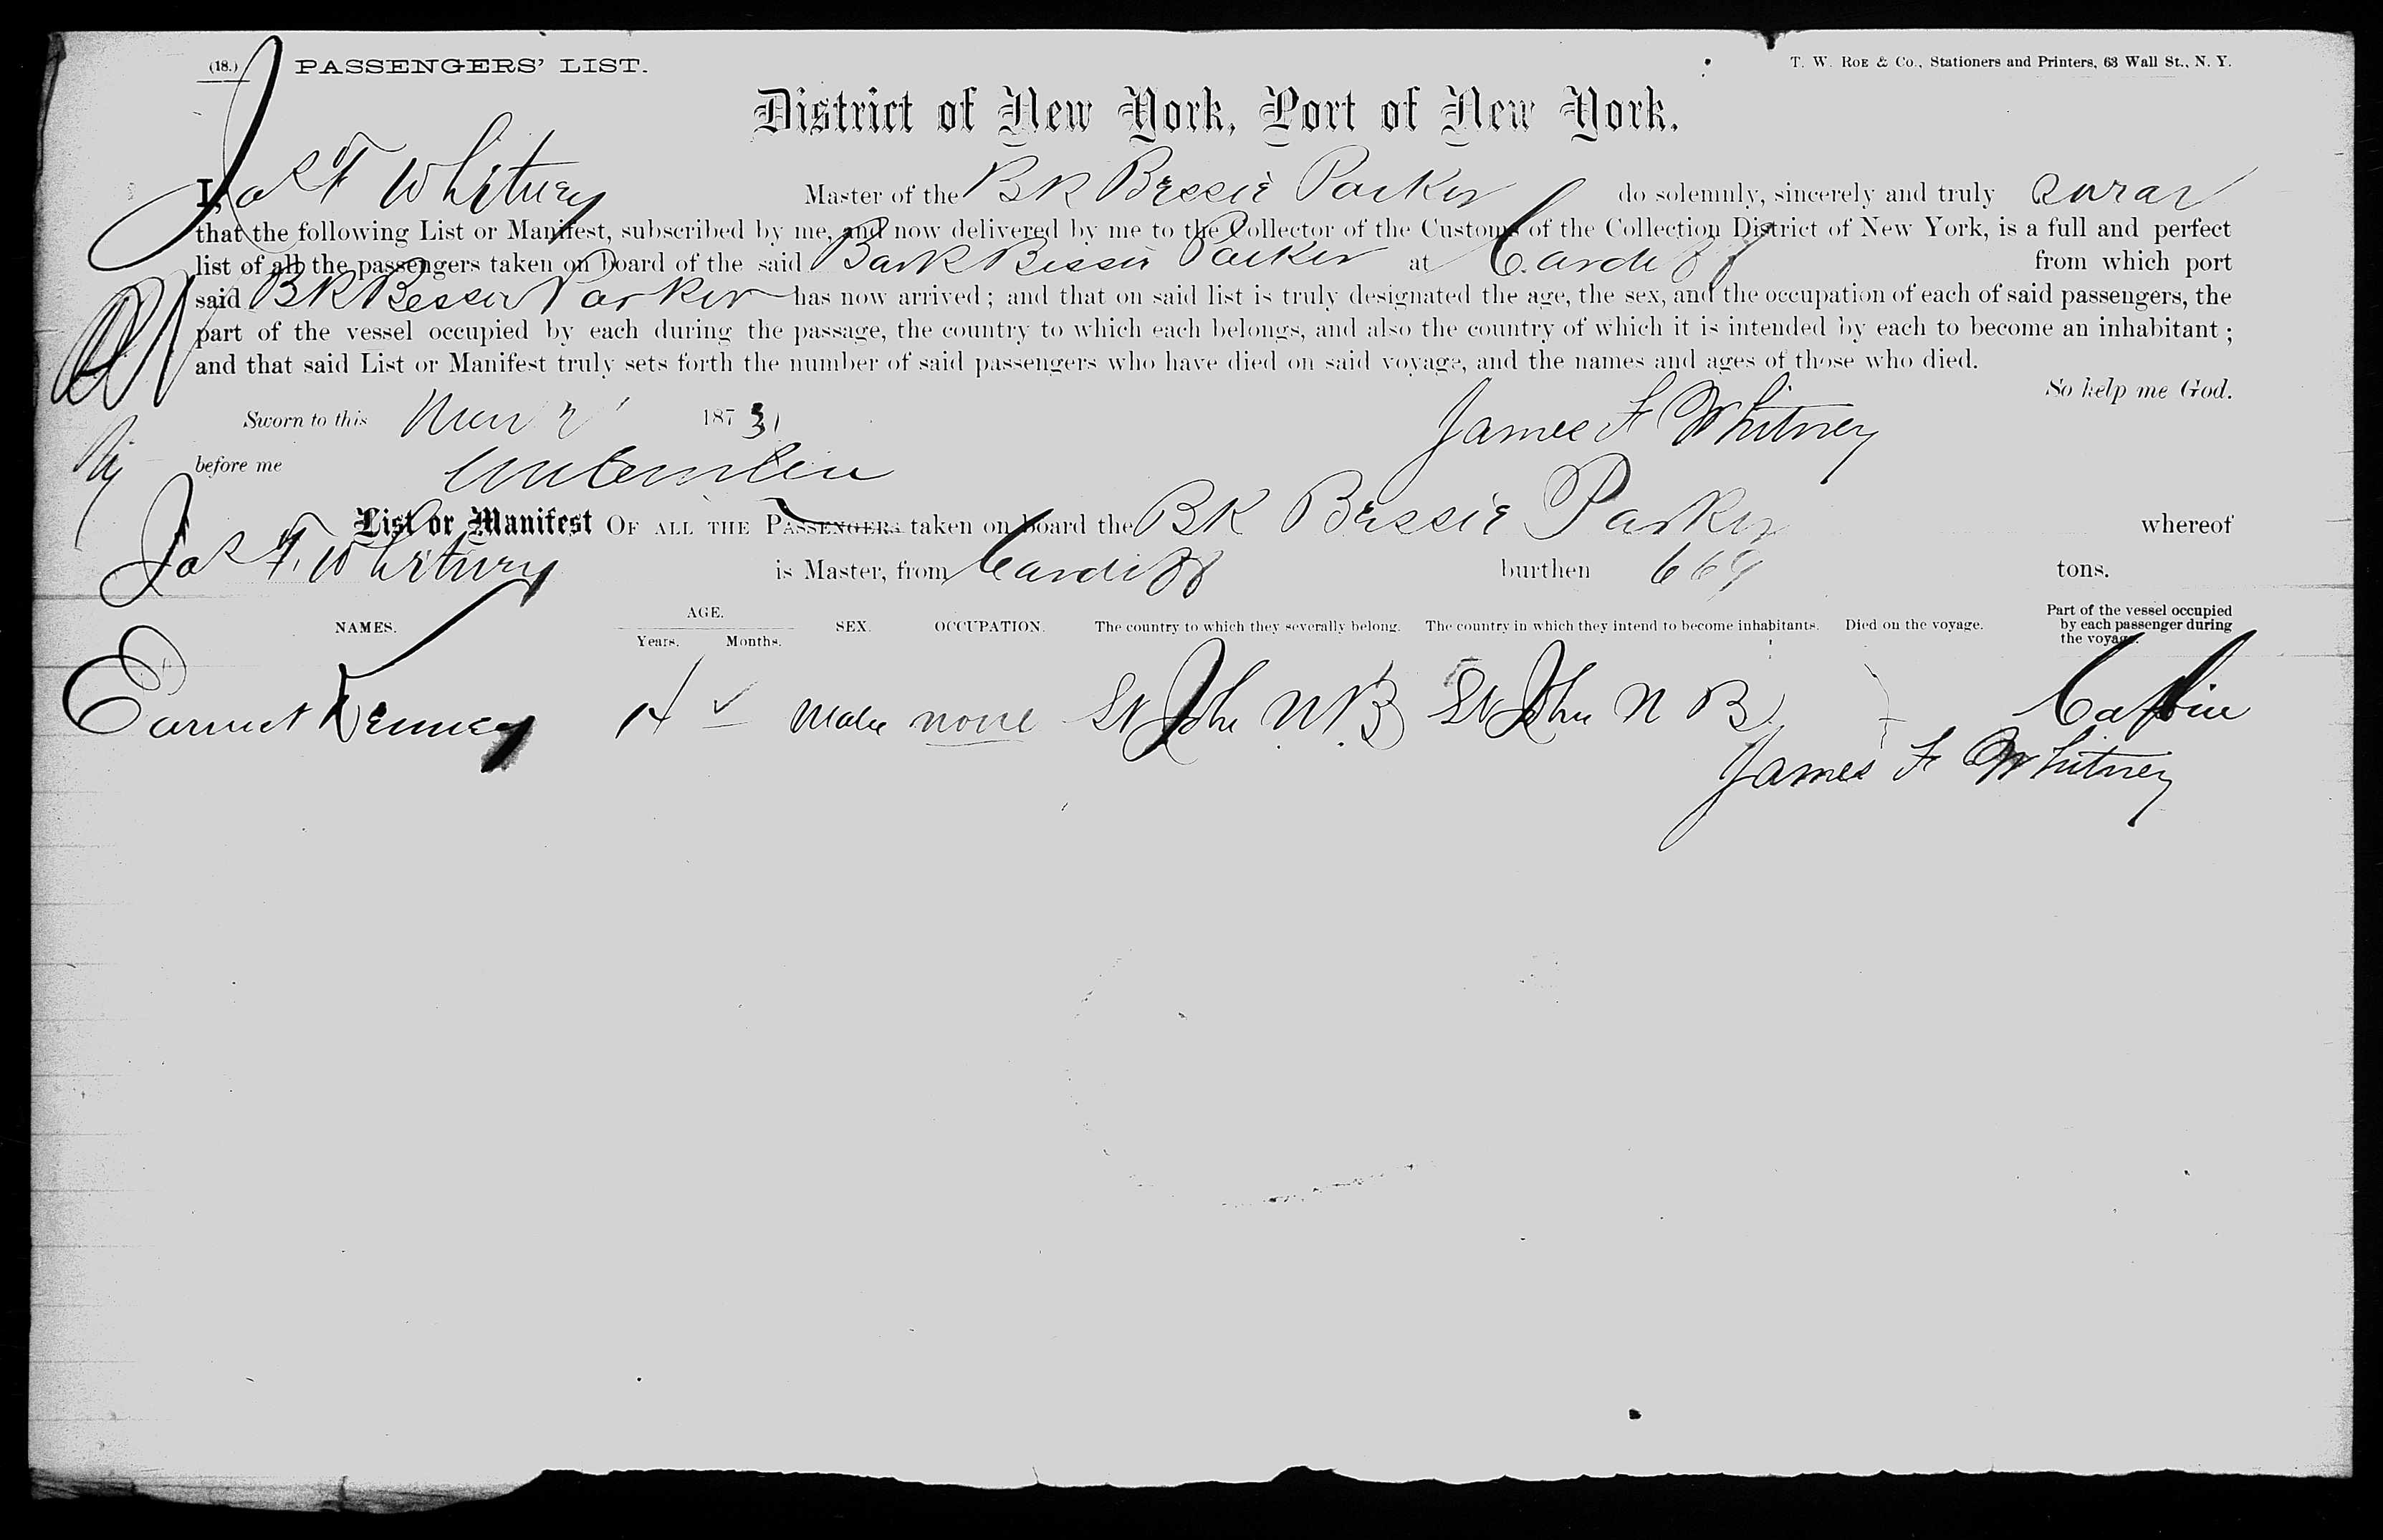 (18.) PASSENGERS' LIST. T. W. ROE & CO., Stationers and Printers, 63 Wall St., N. Y.
District of New York, Port of New York.
I, Jas F Whitney Master of the Bk Bessie Parker do solemnly, sincerely and truly swear
that the following List or Manifest, subscribed by me, and now delivered by me to the Collector of the Customs of the Collection District of New York, is a full and perfect
list of all the passengers taken on board of the said Bark Bessie Parker at Cardiff from which port
said Bk Bessie Parker has now arrived; and that on said list is truly designated the age, the sex, and the occupation of each of said passengers, the
part of the vessel occupied by each during the passage, the country to which each belongs, and also the country of which it is intended by each to become an inhabitant;
and that said List or Manifest truly sets forth the number of said passengers who have died on said voyage, and the names and ages of those who died.
So help me God.
Sworn to this 1873 James F Whitney
before me
List or Manifest OF ALL THE PASSENGERS taken on board the Bk Bessie Parker whereof
Jas F. Whitney is Master, from Cardiff burthen tons.
NAMES. AGE. Years. Months. SEX. OCCUPATION. The country to which they severally belong. The country in which they intend to become inhabitants. Died on the voyage. Part of the vessel occupied by each passenger during the voyage.
Male none St John N B St John N B Cabin
James F Whitney